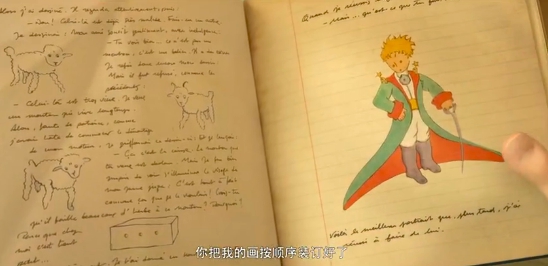 alors j'ai dessiné. Il regarda attentivement, puis :
- Non ! Celui-là est déjà très malade. Fais-en un autre.
Je dessinai ; mon ami sourit gentiment, avec indulgence :
- Tu vois bien... ce n'est pas un
mouton, c'est un bélier. Il a des cornes...
Je refis donc encore mon dessin :
Mais il fut refusé, comme les
précédents :
- Celui-là est trop vieux. Je veux
un mouton qui vive longtemps.
Alors, faute de patience, comme
j'avais hâte de commencer le démontage
de mon moteur, je griffonnai ce dessin-ci. Et je lançai
- Ça c'est la caisse. Le mouton que
tu veux est dedans. Mais je fus bien
surpris de voir s'illuminer le visage de
mon jeune juge. C'est tout à fait
comme ça que je le voulais ! Crois-tu
qu'il faille beaucoup d'herbe à ce mouton ? Pourquoi ?
Parce que chez
moi c'est tout
petit...
- Mais... qu'est-ce que tu fais
Voilà le meilleur portrait que, plus tard, j'ai
réussi à faire de lui.
你把我的画按顺序装订好了